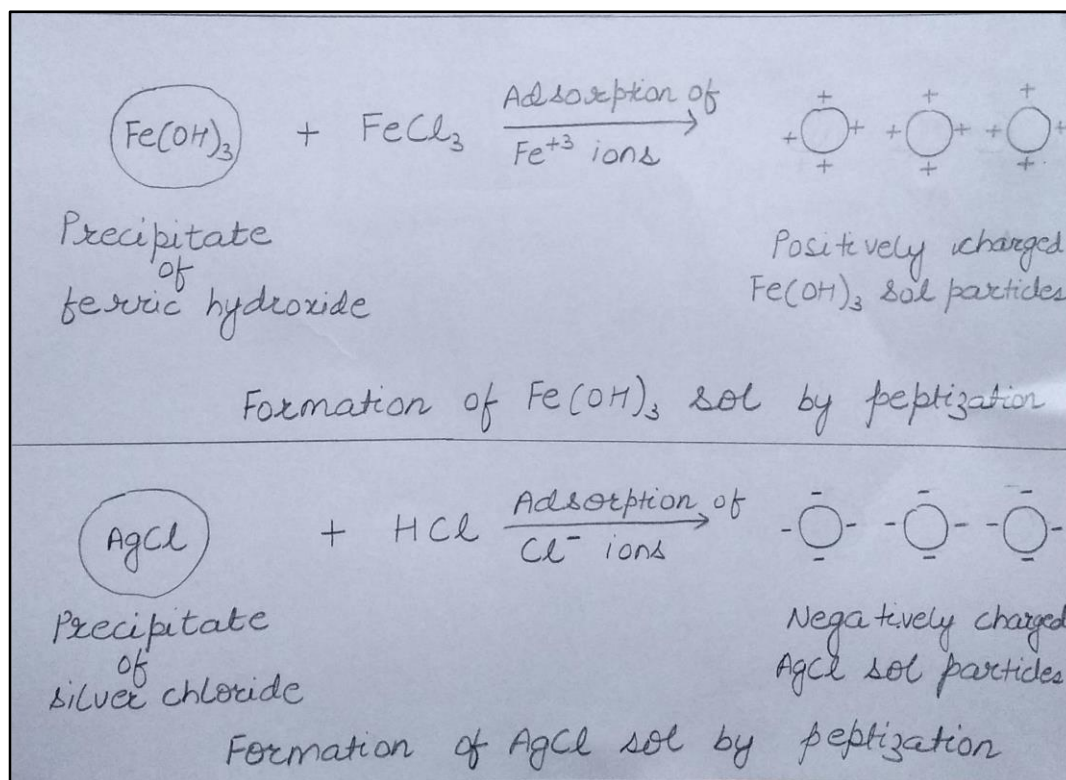 Fe(OH)₃ + FeCl₃ Adsorption of
Fe⁺³ ions
+ + + + + + + + + + + +
Precipitate
of
ferric hydroxide
Positively charged
Fe(OH)₃ sol particles
Formation of Fe(OH)₃ sol by peptization
AgCl + HCl Adsorption of
Cl⁻ ions
- - - - - - - - - - - -
Precipitate
of
silver chloride
Negatively charged
AgCl sol particles
Formation of AgCl sol by peptization